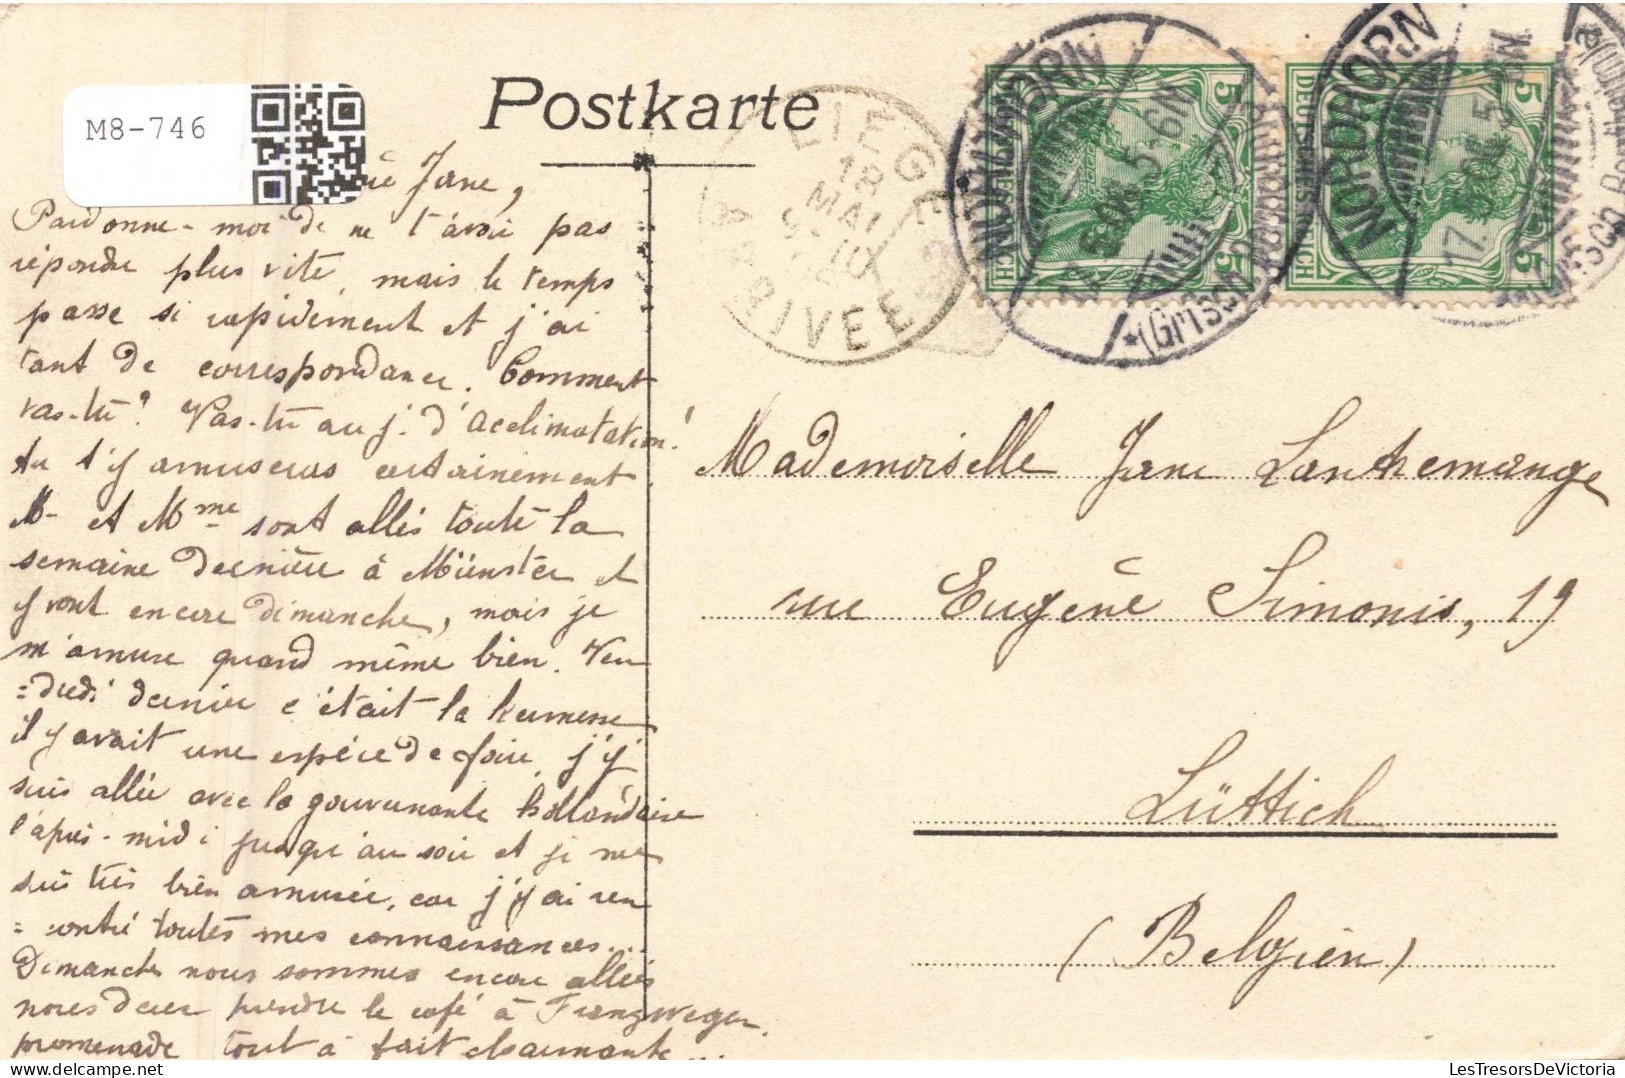 M8-746
Postkarte
LIEGE
18
MAI
ARRIVEE
NORDHORN
17.
5-6N
5 5
DEUTSCHES REICH
Jane,
Pardonne-moi de ne t'avoir pas
répondu plus vite, mais le temps
passe si rapidement et j'ai
tant de correspondance. Comment
vas-tu? Vas-tu au j. d'acclimatation!
tu t'y amuseras certainement.
M. et Mme sont allés toute la
semaine dernière à Münster et
y vont encore dimanche, mais je
m'amuse quand même bien. Ven
=dredi dernier c'était la kermesse
il y avait une espèce de foire, j'y
suis allée avec la gouvernante hollandaise
l'après-midi jusqu'au soir et je me
suis très bien amusée, car j'y ai ren
=contré toutes mes connaissances...
Dimanche nous sommes encore allés
nous deux prendre le café à
promenade tout à fait charmante...
Mademoiselle Jane Lanhemange
rue Eugène Simonis, 19
Lüttich
(Belgien)
LesTresorsDeVictoria